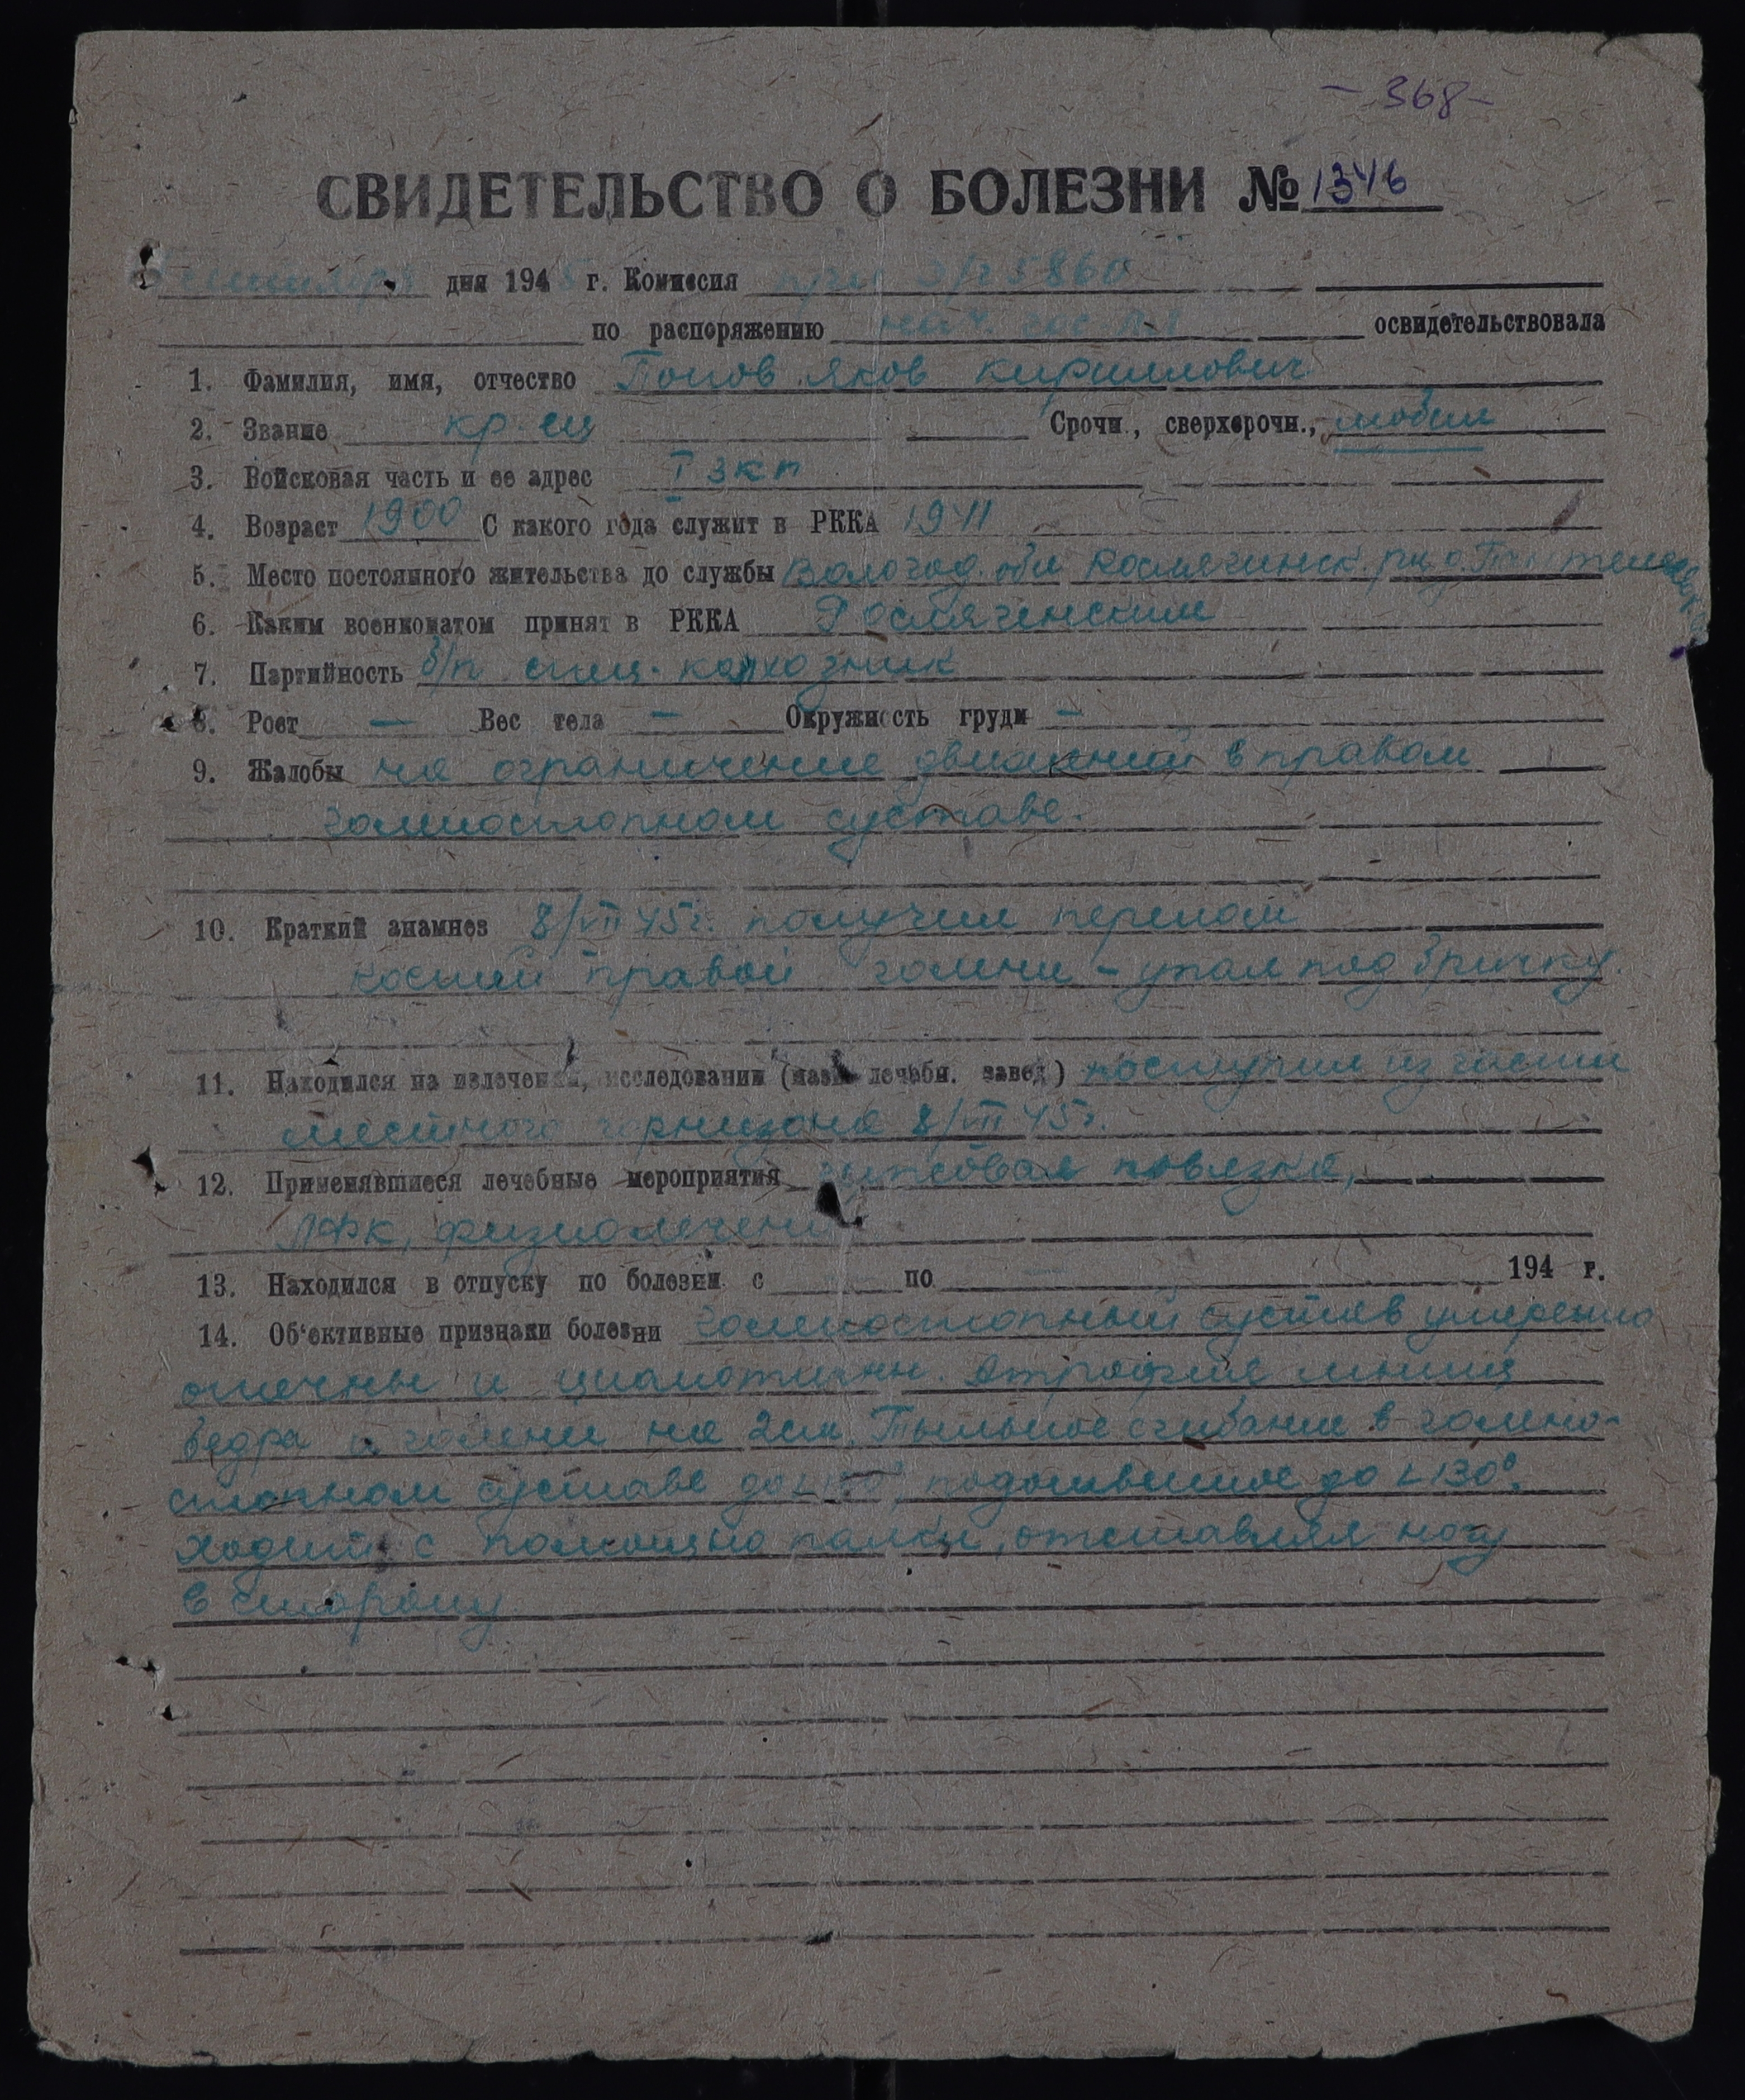 - 368 -
СВИДЕТЕЛЬСТВО О БОЛЕЗНИ № 1346
дня 1945 г. Комиссия при э/г 5860
по распоряжению нач. освидетельствовала
1. Фамилия, имя, отчество Попов Яков Кириллович
2. Звание кр-ец Срочн., сверхсрочн., мобил
3. Войсковая часть и ее адрес I зкп
4. Возраст 1900 С какого года служит в РККА 1941
5. Место постоянного жительства до службы Вологод. обл Рослятинск. р-н
6. Каким военкоматом принят в РККА Рослятенским
7. Партийность б/п колхозник
8. Рост — Вес тела — Окружность груди —
9. Жалобы на ограничение движений в правом
голеностопном суставе.
10. Краткий анамнез 8/VII 45г. получил перелом
костей правой голени - упал под бричку.
11. Находился на излечении, исследовании (назв. лечебн. завед) поступил из части
местного гарнизона 8/VII 45г.
12. Применявшиеся лечебные мероприятия гипсовая повязка,
ЛФК, физиолечение
13. Находился в отпуску по болезни с по 194 г.
14. Об'ективные признаки болезни голеностопный сустав умеренно
отечны и цианотичны. Атрофия мышц
бедра и голени на 2см. Тыльное сгибание в голено-
стопном суставе до подошвенное до ∠130°.
Ходит с помощью палки, отставляя ногу
в сторону